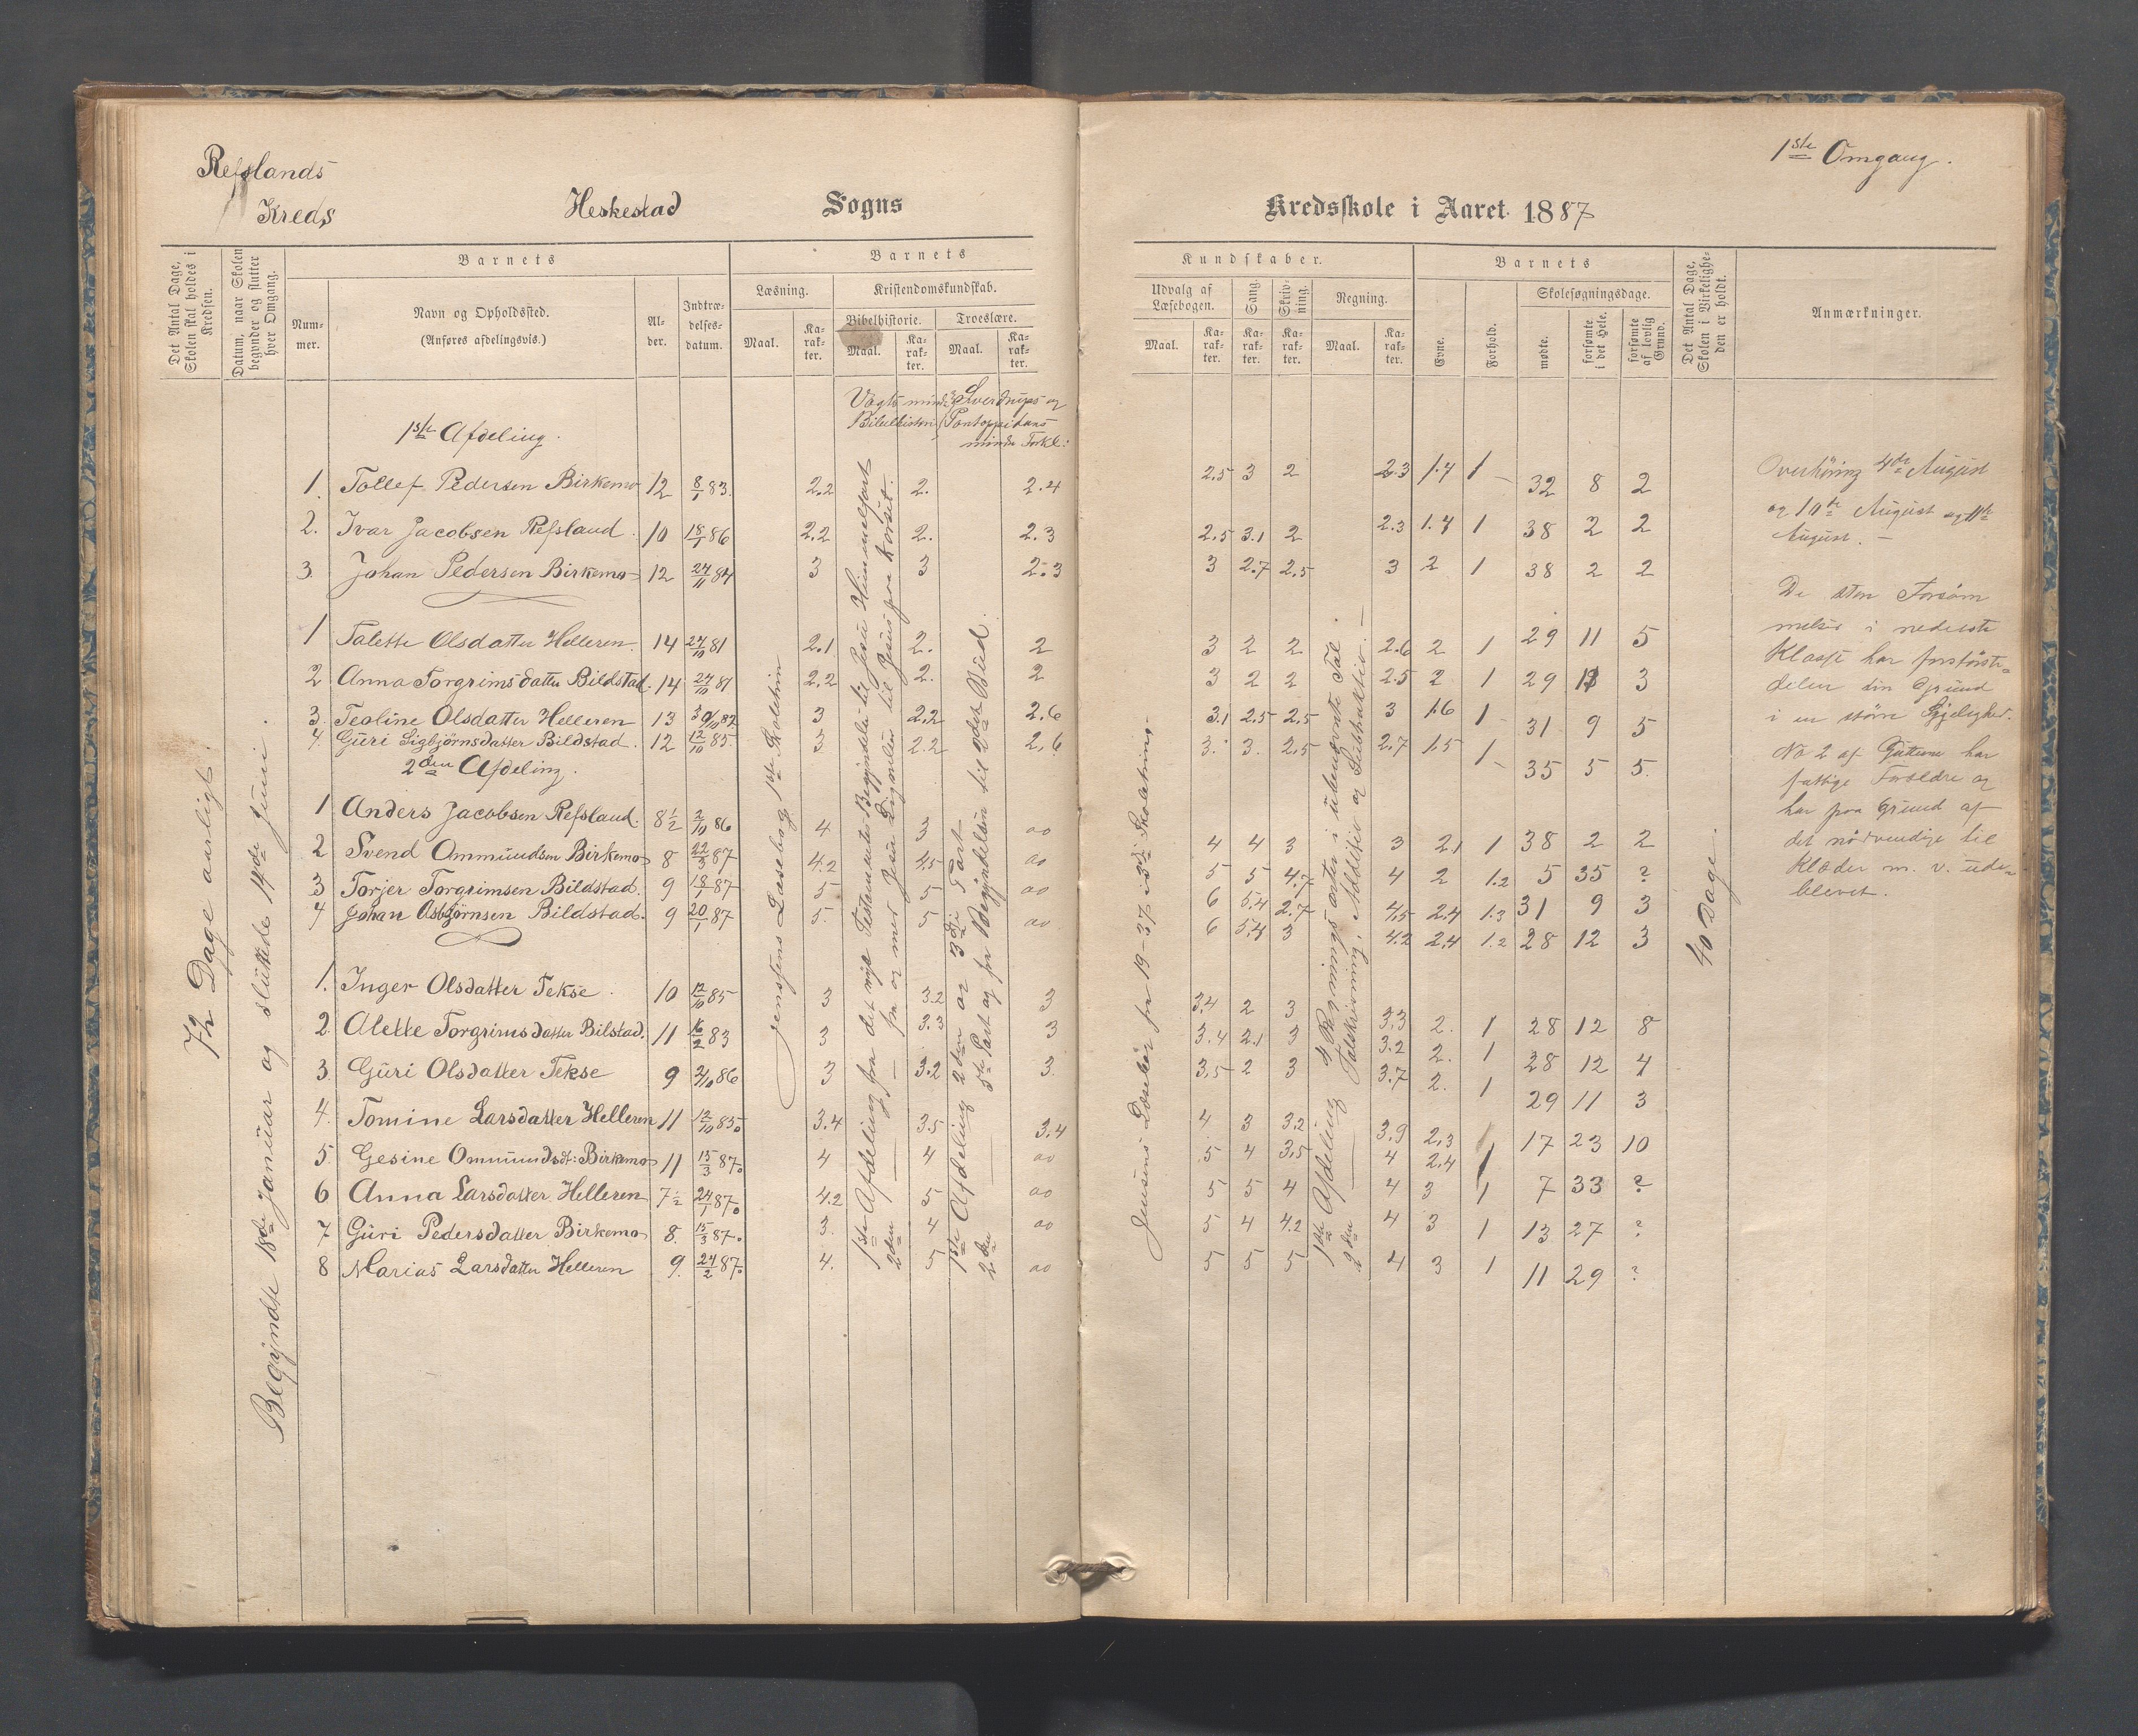 Refslands
Kreds
Heskestad Sogns
Kredsskole i Aaret 1887
1ste Omgang.
Det Antal Dage, Skolen skal holdes i Kredsen.
Datum, naar Skolen begynder og slutter hver Omgang.
Barnets
Nummer.
Navn og Opholdssted.
(Anføres afdelingsvis.)
Alder.
Indtrædelsesdatum.
Barnets
Læsning.
Maal.
Karakter.
Kristendomskundskab.
Bibelhistorie.
Maal.
Karakter.
Troeslære.
Maal.
Karakter.
Kundskaber.
Udvalg af Læsebogen.
Maal.
Karakter.
Sang.
Karakter.
Skrivning.
Karakter.
Regning.
Maal.
Karakter.
Barnets
Evne.
Forhold.
Skolesøgningsdage.
mødte.
forsømte i det Hele.
forsømte af lovlig Grund.
Det Antal Dage, Skolen i Virkeligheden er holdt.
Anmærkninger.
72 Dage aarligt.
Begyndte 18de Januar og sluttede 14de Juni.
Vogts mindre Bibelhistorie
Sverdrups og Pontoppidans mindre Forkl:
1ste Afdeling.
1. Tollef Pedersen Birkemo 12 8/1 83. 2.2 2. 2.4 2.5 3 2 2.3 1.7 1 32 8 2
2. Ivar Jacobsen Refsland. 10 18/1 86 2.2 2. 2.3 2.5 3.1 2 2.3 1.7 1 38 2 2
3. Johan Pedersen Birkemo 12 24/11 84 3 3 2.3 3 2.7 2.5 3 2 1 38 2 2
1 Talette Olsdatter Helleren. 14 27/10 81 2.1 2. 2 3 2 2 2.6 2 1 29 11 5
2 Anna Torgrimsdatter Bildstad. 14 24/10 81 2.2 2. 2 3 2 2 2.5 2 1 29 11 3
3. Teoline Olsdatter Helleren 13 30/10 82 3 2.2 2.6 3.1 2.5 2.5 3 1.6 1 31 9 5
4. Guri Sigbjörnsdatter Bildstad. 12 12/10 85. 3 2.2 2.6 3. 3. 2.5 2.7 1.5 1 35 5 5.
2den Afdeling.
1 Anders Jacobsen Refsland. 8½ 2/10 86 4 3 ao 4 4 3 3 2.1 1 38 2 2
2 Svend Ommundsen Birkemo 8 22/3 87 4.2 4.5 ao 5 5 4.7 4 2 1.2 5 35 ?
3 Torjer Torgrimsen Bildstad. 9 18/1 87 5 5 ao 6 5.4 2.7 4.5 2.4 1.3 31 9 3
4 Johan Asbjörnsen Bildstad. 9 20/1 87 5. 5 ao 6 5.4 3 4.2 2.4 1.2 28 12 3
1. Inger Olsdatter Tekse. 10 12/10 85 3 3.2 3 3.4 2 3 3.3 2. 1 28 12 8
2. Alette Torgrimsdatter Bilstad. 11 16/2 83 3 3.3 3 3.4 2.1 3 3.2 2. 1 28 12 4
3. Guri Olsdatter Tekse 9 2/10 86. 3 3.2 3. 3.5 2 3 3.7 2. 1 29 11 3
4. Tomine Larsdatter Helleren 11 12/10 85. 3.4 3.5 3.4 4 3 3.2 3.9 2.3 1 17 23 10
5. Gesine Ommundsdt: Birkemo 11 15/3 87. 4 4 ao 5 4 3.5 4 2.4 1 7 33 ?
6 Anna Larsdatter Helleren 7½ 24/1 87. 4.2 5 ao 5 5 4 4 3 1 13 27 ?
7 Guri Pedersdatter Birkemo 8. 15/3 87. 3. 4 ao 5 4 4.2 4 3 1 11 29 ?
8 Marias Larsdatter Helleren 9. 24/2 87. 4. 5 ao 5 5 5 4 3 1
Jenssens Læsebog 1ste Skoletrin
1ste Afdeling fra det nye Testamentes Begyndelse til Jesu Himmelfart
2den — fra og med Jesu Lignelser til Jesus paa Korset.
1ste Afdeling 2den og 3die Part
2den — 5te Part og fra Begyndelsen til 2det Bud.
Jensens Læsebog fra 19-37 i 3die Skoletrin.
1ste Afdeling 4 Regningsarter i ubenævnte Tal.
2den — Talskrivning, Addition og Subtraktion.
40 Dage.
Overhöring 4de August
og 10de August og 11te
August. —
De störe Forsöm
melser i nederste
Klasse har forstörste
delen sin Grund
i en större Sygelighed.
No 2 af Gutterne har
fattige Foreldre og
har paa Grund af
det nödvendige til
Klæder m. v. ude
blevet.